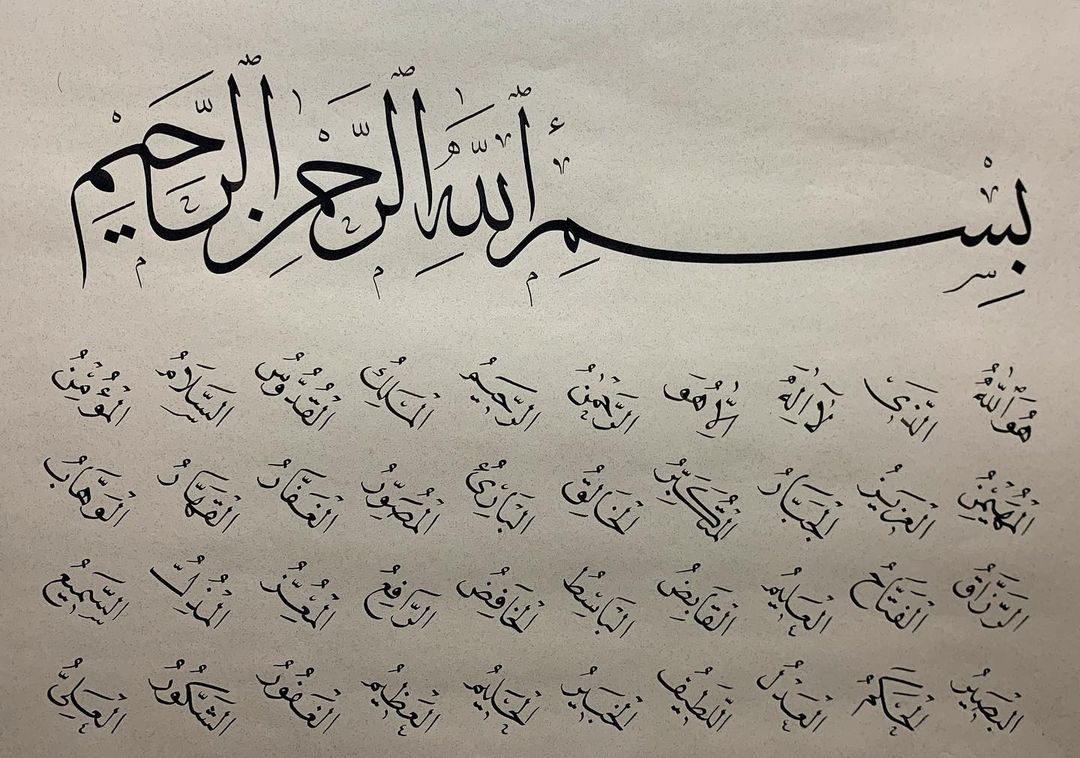 بِسْمِ ٱللَّهِ ٱلرَّحْمٰنِ ٱلرَّحِيمِ
هُوَ اللّٰهُ الَّذِى لَا اِلٰهَ اِلَّا هُوَ الرَّحْمٰنُ الرَّحِيمُ الْمَلِكُ الْقُدُّوسُ السَّلَامُ الْمُؤْمِنُ
الْمُهَيْمِنُ الْعَزِيزُ الْجَبَّارُ الْمُتَكَبِّرُ الْخَالِقُ الْبَارِئُ الْمُصَوِّرُ الْغَفَّارُ الْقَهَّارُ الْوَهَّابُ
الرَّزَّاقُ الْفَتَّاحُ الْعَلِيمُ الْقَابِضُ الْبَاسِطُ الْخَافِضُ الرَّافِعُ الْمُعِزُّ الْمُذِلُّ السَّمِيعُ
الْبَصِيرُ الْحَكَمُ الْعَدْلُ اللَّطِيفُ الْخَبِيرُ الْحَلِيمُ الْعَظِيمُ الْغَفُورُ الشَّكُورُ الْعَلِىُّ